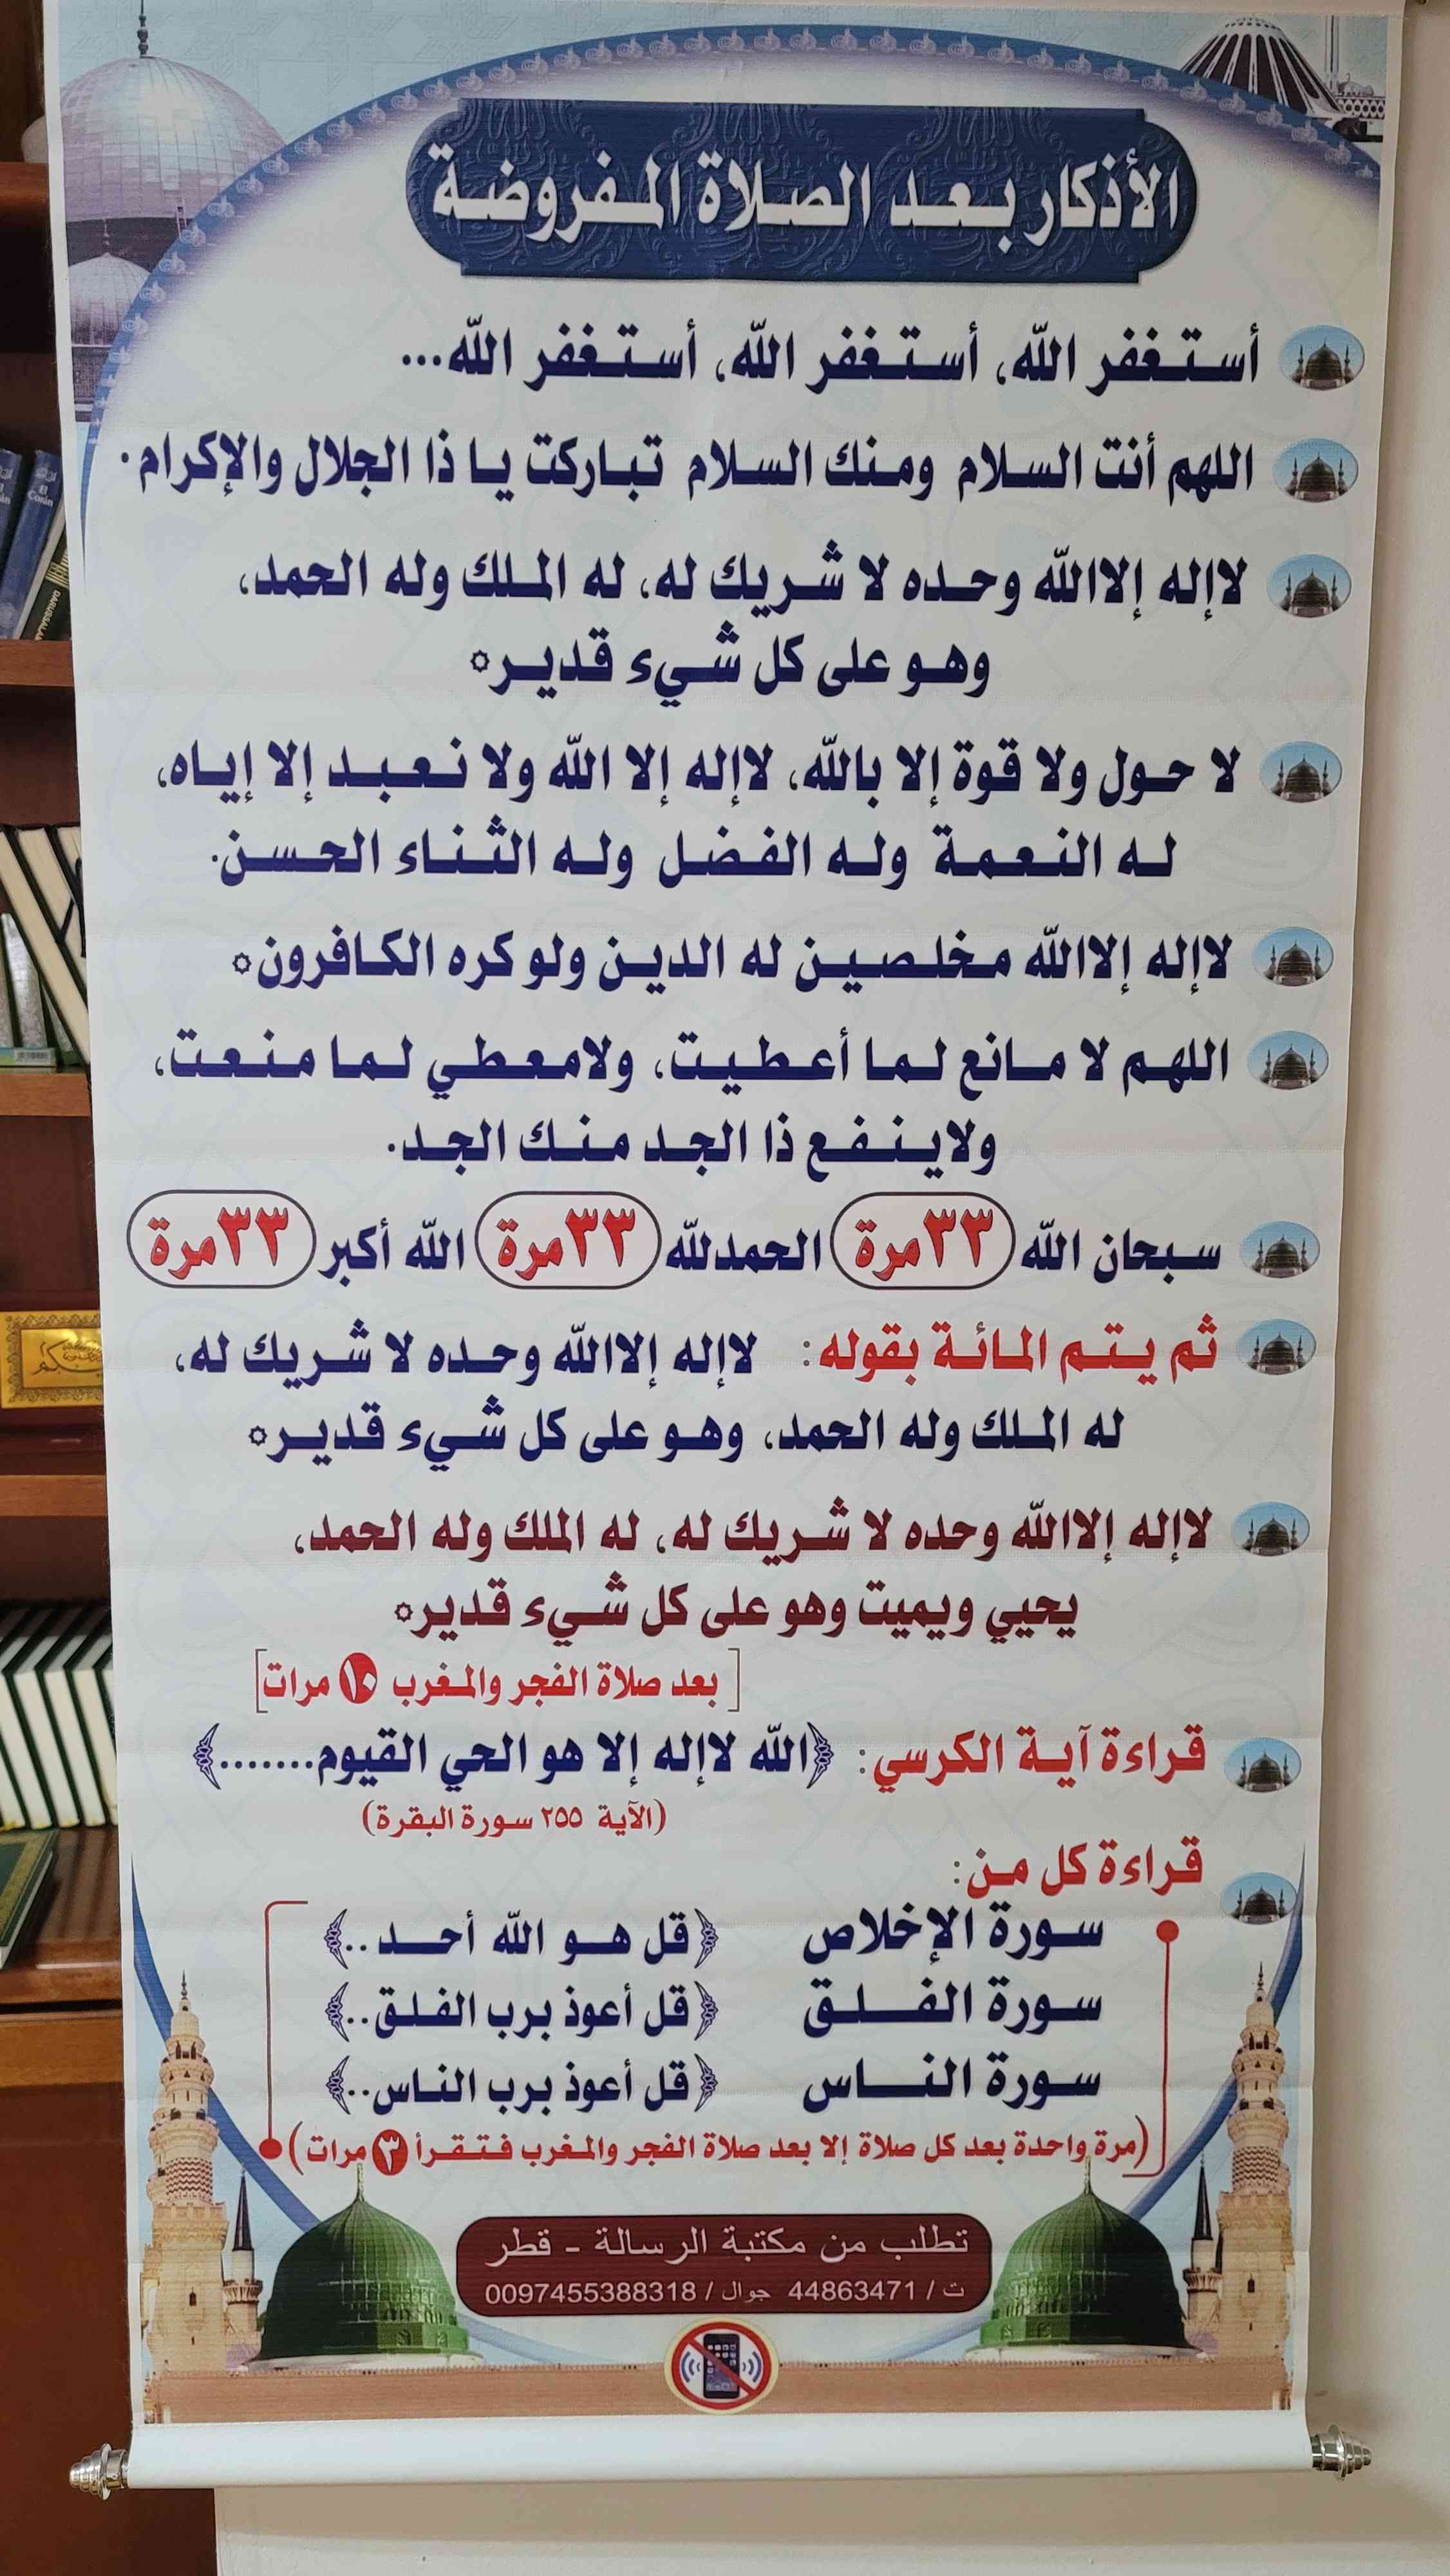 الأذكار بعد الصلاة المفروضة
أستغفر الله، أستغفر الله، أستغفر الله...
اللهم أنت السلام ومنك السلام تباركت يا ذا الجلال والإكرام.
لاإله إلاالله وحده لا شريك له، له الملك وله الحمد،
وهو على كل شيء قدير۞
لا حول ولا قوة إلا بالله، لاإله إلا الله ولا نعبد إلا إياه،
له النعمة وله الفضل وله الثناء الحسن.
لاإله إلاالله مخلصين له الدين ولو كره الكافرون۞
اللهم لا مانع لما أعطيت، ولامعطي لما منعت،
ولاينفع ذا الجد منك الجد.
سبحان الله ٣٣مرة الحمدلله ٣٣مرة الله أكبر ٣٣مرة
ثم يتم المائة بقوله: لاإله إلاالله وحده لا شريك له،
له الملك وله الحمد، وهو على كل شيء قدير۞
لاإله إلاالله وحده لا شريك له، له الملك وله الحمد،
يحيي ويميت وهو على كل شيء قدير۞
[بعد صلاة الفجر والمغرب ١٠ مرات]
قراءة آية الكرسي: ﴿الله لاإله إلا هو الحي القيوم.......﴾
(الآية ٢٥٥ سورة البقرة)
قراءة كل من:
سورة الإخلاص ﴿قل هو الله أحد..﴾
سورة الفلق ﴿قل أعوذ برب الفلق..﴾
سورة الناس ﴿قل أعوذ برب الناس..﴾
(مرة واحدة بعد كل صلاة إلا بعد صلاة الفجر والمغرب فتقرأ ٣ مرات)
تطلب من مكتبة الرسالة - قطر
ت / 44863471 جوال / 0097455388318
El Corán
DARUSSALAM